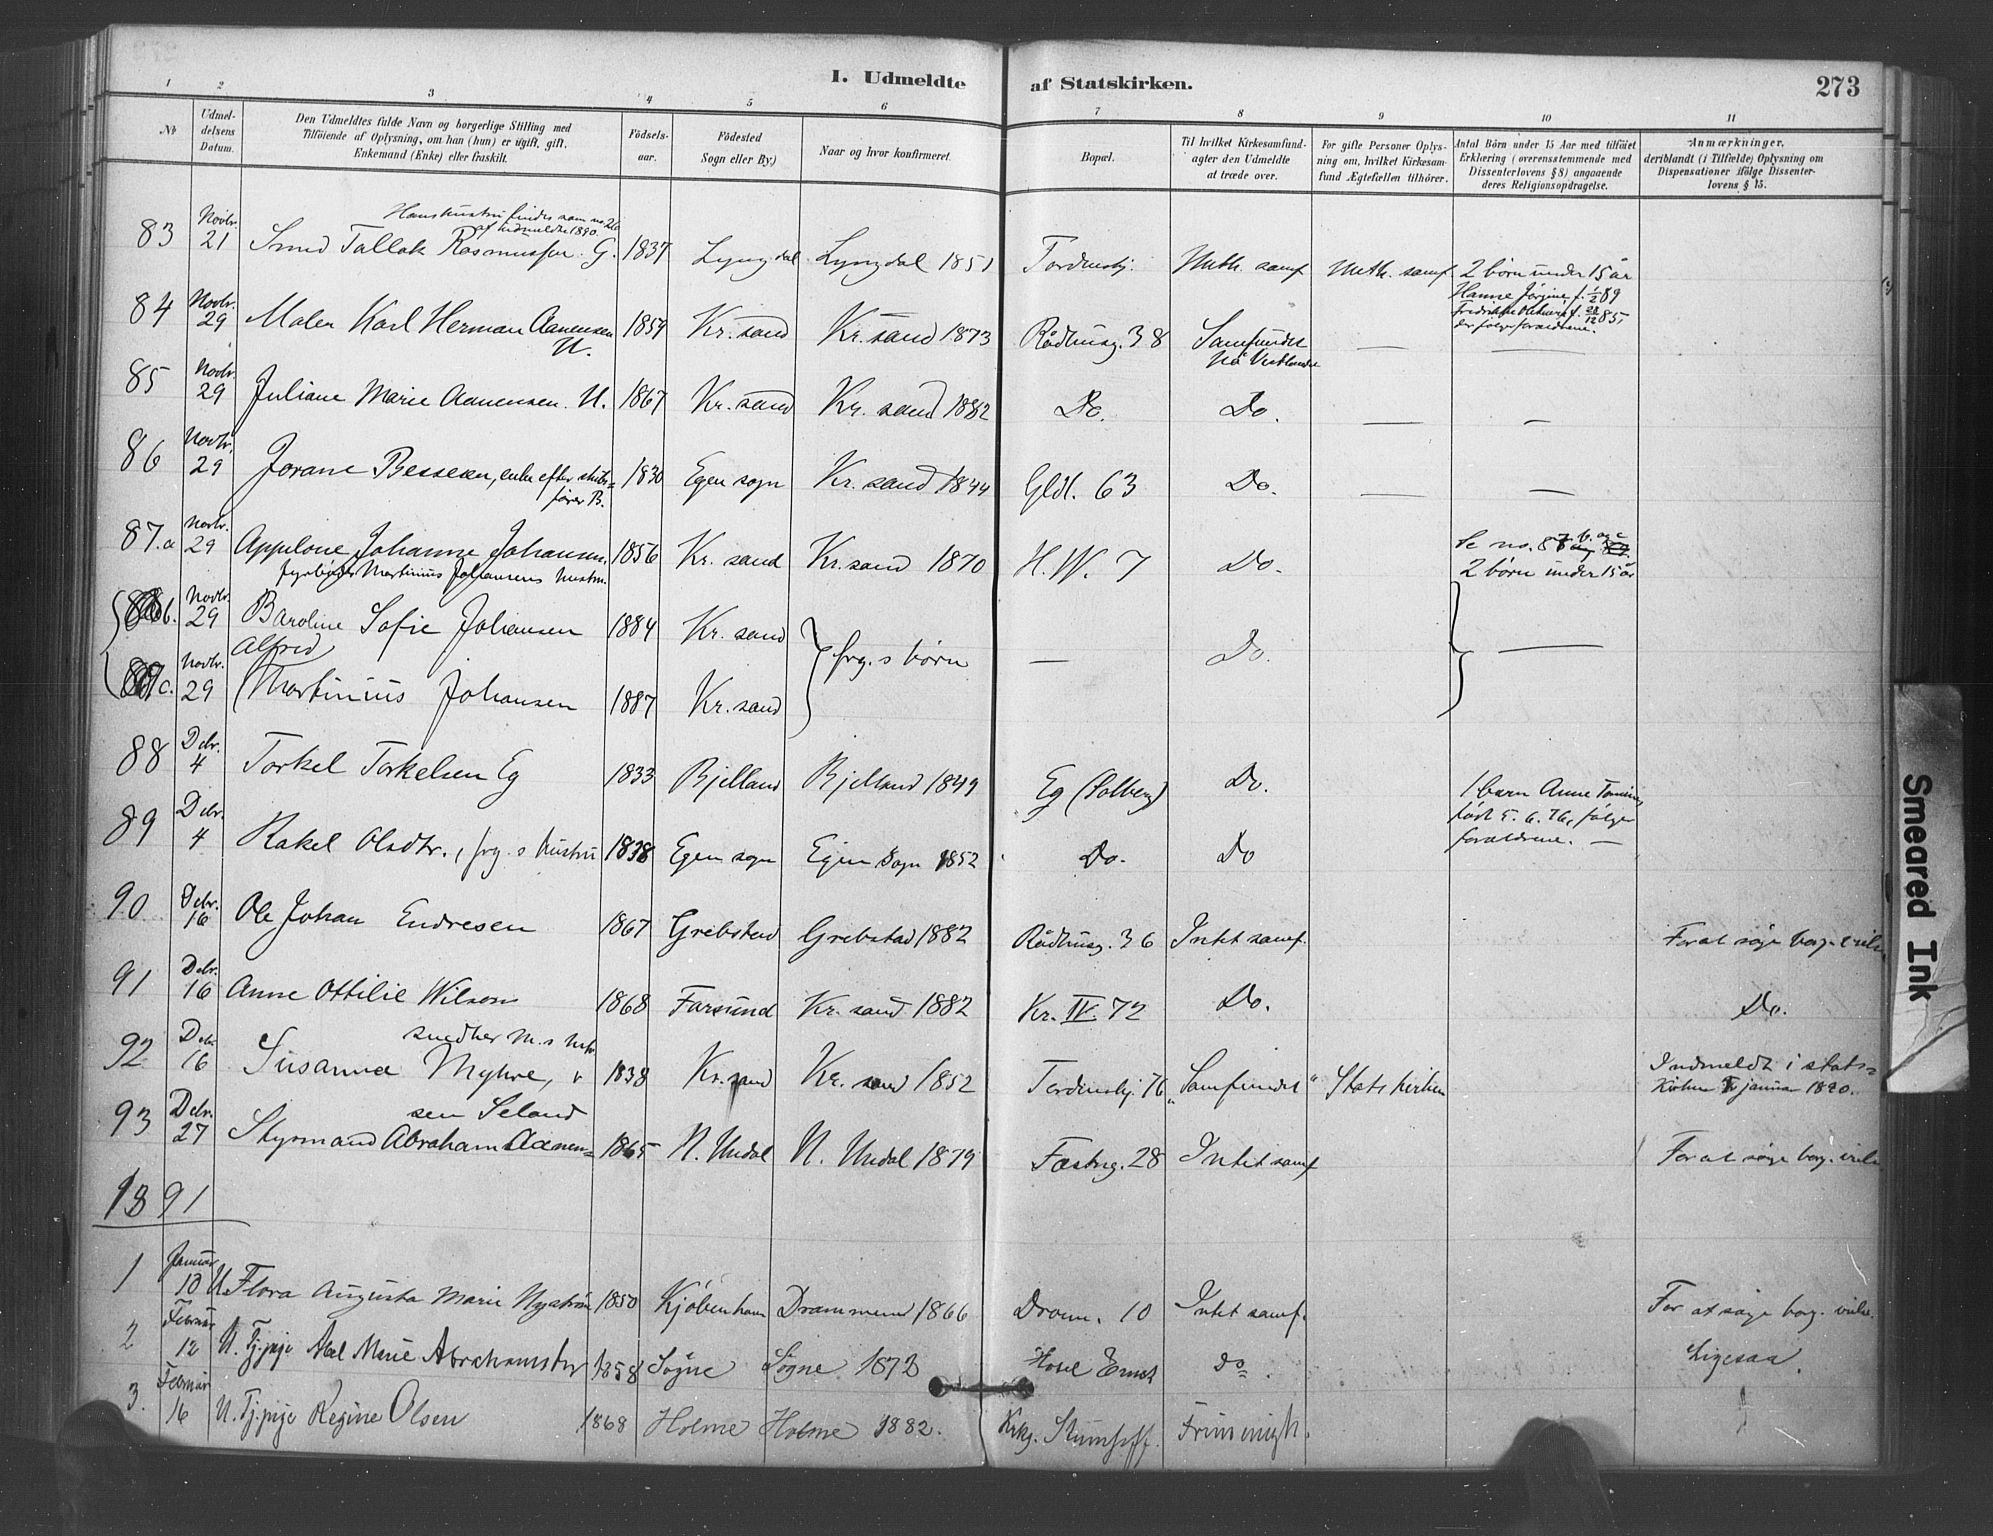 I. Udmeldte af Statskirken. 273
1 2 3 4 5 6 7 8 9 10 11
No
Udmel-
delsens
Datum.
Den Udmeldtes fulde Navn og borgerlige Stilling med
Tilföiende af Oplysning, om han (hun) er ugift, gift,
Enkemand (Enke) eller fraskilt.
Födsels-
aar.
Födested
Sogn eller By.)
Naar og hvor konfirmeret.
Bopæl.
Til hvilket Kirkesamfund-
agter den Udmeldte
at træde over.
For gifte Personer Oplys-
ning om, hvilket Kirkesam-
fund Ægtefællen tilhörer.
Antal Börn under 15 Aar med tilföiet
Erklæring (overensstemmende med
Dissenterlovens § 8) angaaende
deres Religionsopdragelse.
Anmærkninger,
deriblandt (i Tilfælde) Oplysning om
Dispensationer ifölge Dissenter-
lovens § 15.
Hans hustru findes som no. 26
af udmeldte 1890.
83 Novbr. 21 Smed Tallak Rasmussen. G. 1837 Lyngdal Lyngdal 1851 Meth. samf. Meth. samf. 2 børn under 15 år
Hanne Jørgine f. 1/2 89
f. 85,
84 Novbr. 29 Maler Karl Herman Aanensen 1859 Kr. sand Kr. sand 1873 Rådhusg. 38 Samfundet — —
U. på Vestlandet
85 Novbr. 29 Juliane Marie Aanensen. U. 1867 Kr. sand Kr. sand 1882 Do. Do. — —
86 Novbr. 29 Jorane Bessesen, enke efter skibs= 1830 Egen sogn Kr. sand 1844 Gldl. 63 Do. — —
fører B.
87.a Novbr. 29 Appelone Johanne Johansen, 1856 Kr. sand Kr. sand 1870 H. W. 7 Do. Se no. 87 b. og c
Martinius Johansens hustru. 2 børn under 15 år
b. Novbr. 29 Baroline Sofie Johansen 1884 Kr. sand frg.s børn — Do. —
Alfred
c. Novbr. 29 Martinius Johansen 1887 Kr. sand
88 Debr. 4 Torkel Torkelsen Eg 1833 Bjelland Bjelland 1849 Eg (Solberg) Do. 1 barn Anne
født 5. 6. 76, følger
forældrene. —
89 Debr. 4 Rakel Olsdtr., frg.s hustru 1838 Egen sogn Egen sogn 1852 Do. Do
90 Debr. 16 Ole Johan Endresen 1867 Grebstad Grebstad 1882 Rådhusg. 36 Intet samf. For at søge borg. vielse
91 Debr. 16 Anne Ottilie Wilson 1868 Farsund Kr. sand 1882 Kr. IV. 72 Do. Do.
snedker M.s
92 Debr. 16 Susanna Myhre, 1838 Kr. sand Kr. sand 1852 76 "Samfundet" Statskirken Indmeldt i stats=
kirken januar 1890.
sen Seland
93 Debr. 27 Styrmand Abraham Aanen= 1865 N. Undal N. Undal 1879 Fæstng. 28 Intet samf For at søge borg. vielse
1891
1 Januar 10 U. Flora Augusta Marie Nystrøm 1850 Kjøbenhavn Drammen 1866 Dronn. 10 Intet samf. For at søge borg. vielse
2 Februar 12 U. Tj.pige Abel Marie Abrahamsdtr 1858 Søgne Søgne 1872 Hotel Ernst do. Ligesaa.
3. Februar 16 U. Tj.pige Regine Olsen 1868 Holme Holme 1882. Frimenigh.
Smeared Ink